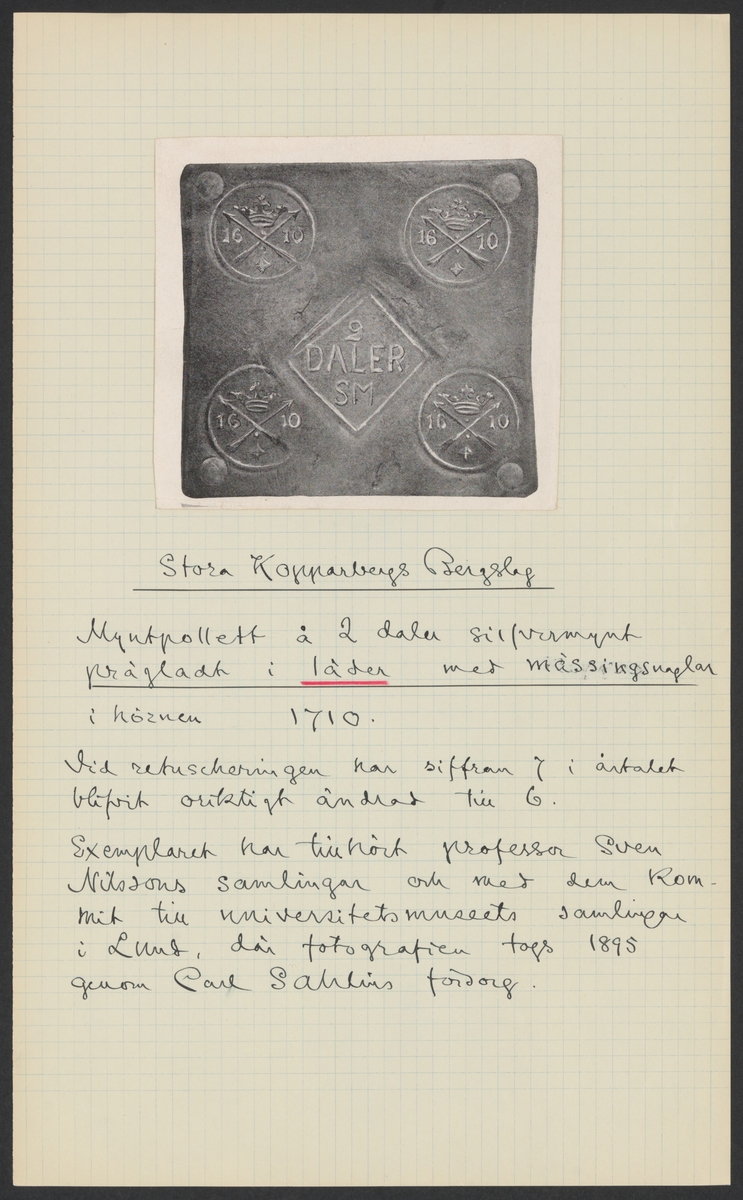 16 10
16 10
2
DALER
SM
16 10
16 10
Stora Kopparbergs Bergslag
Myntpollett å 2 daler silfvermynt
prägladt i läder med mässingsnaglar
i hörnen 1710.
Vid retuscheringen har siffran 7 i årtalet
blifvit oriktigt ändrad till 6.
Exemplaret har tillhört professor Sven
Nilssons samlingar och med dem kom-
mit till universitetsmuseets samlingar
i Lund, där fotografien togs 1895
genom Carl Sahlins försorg.